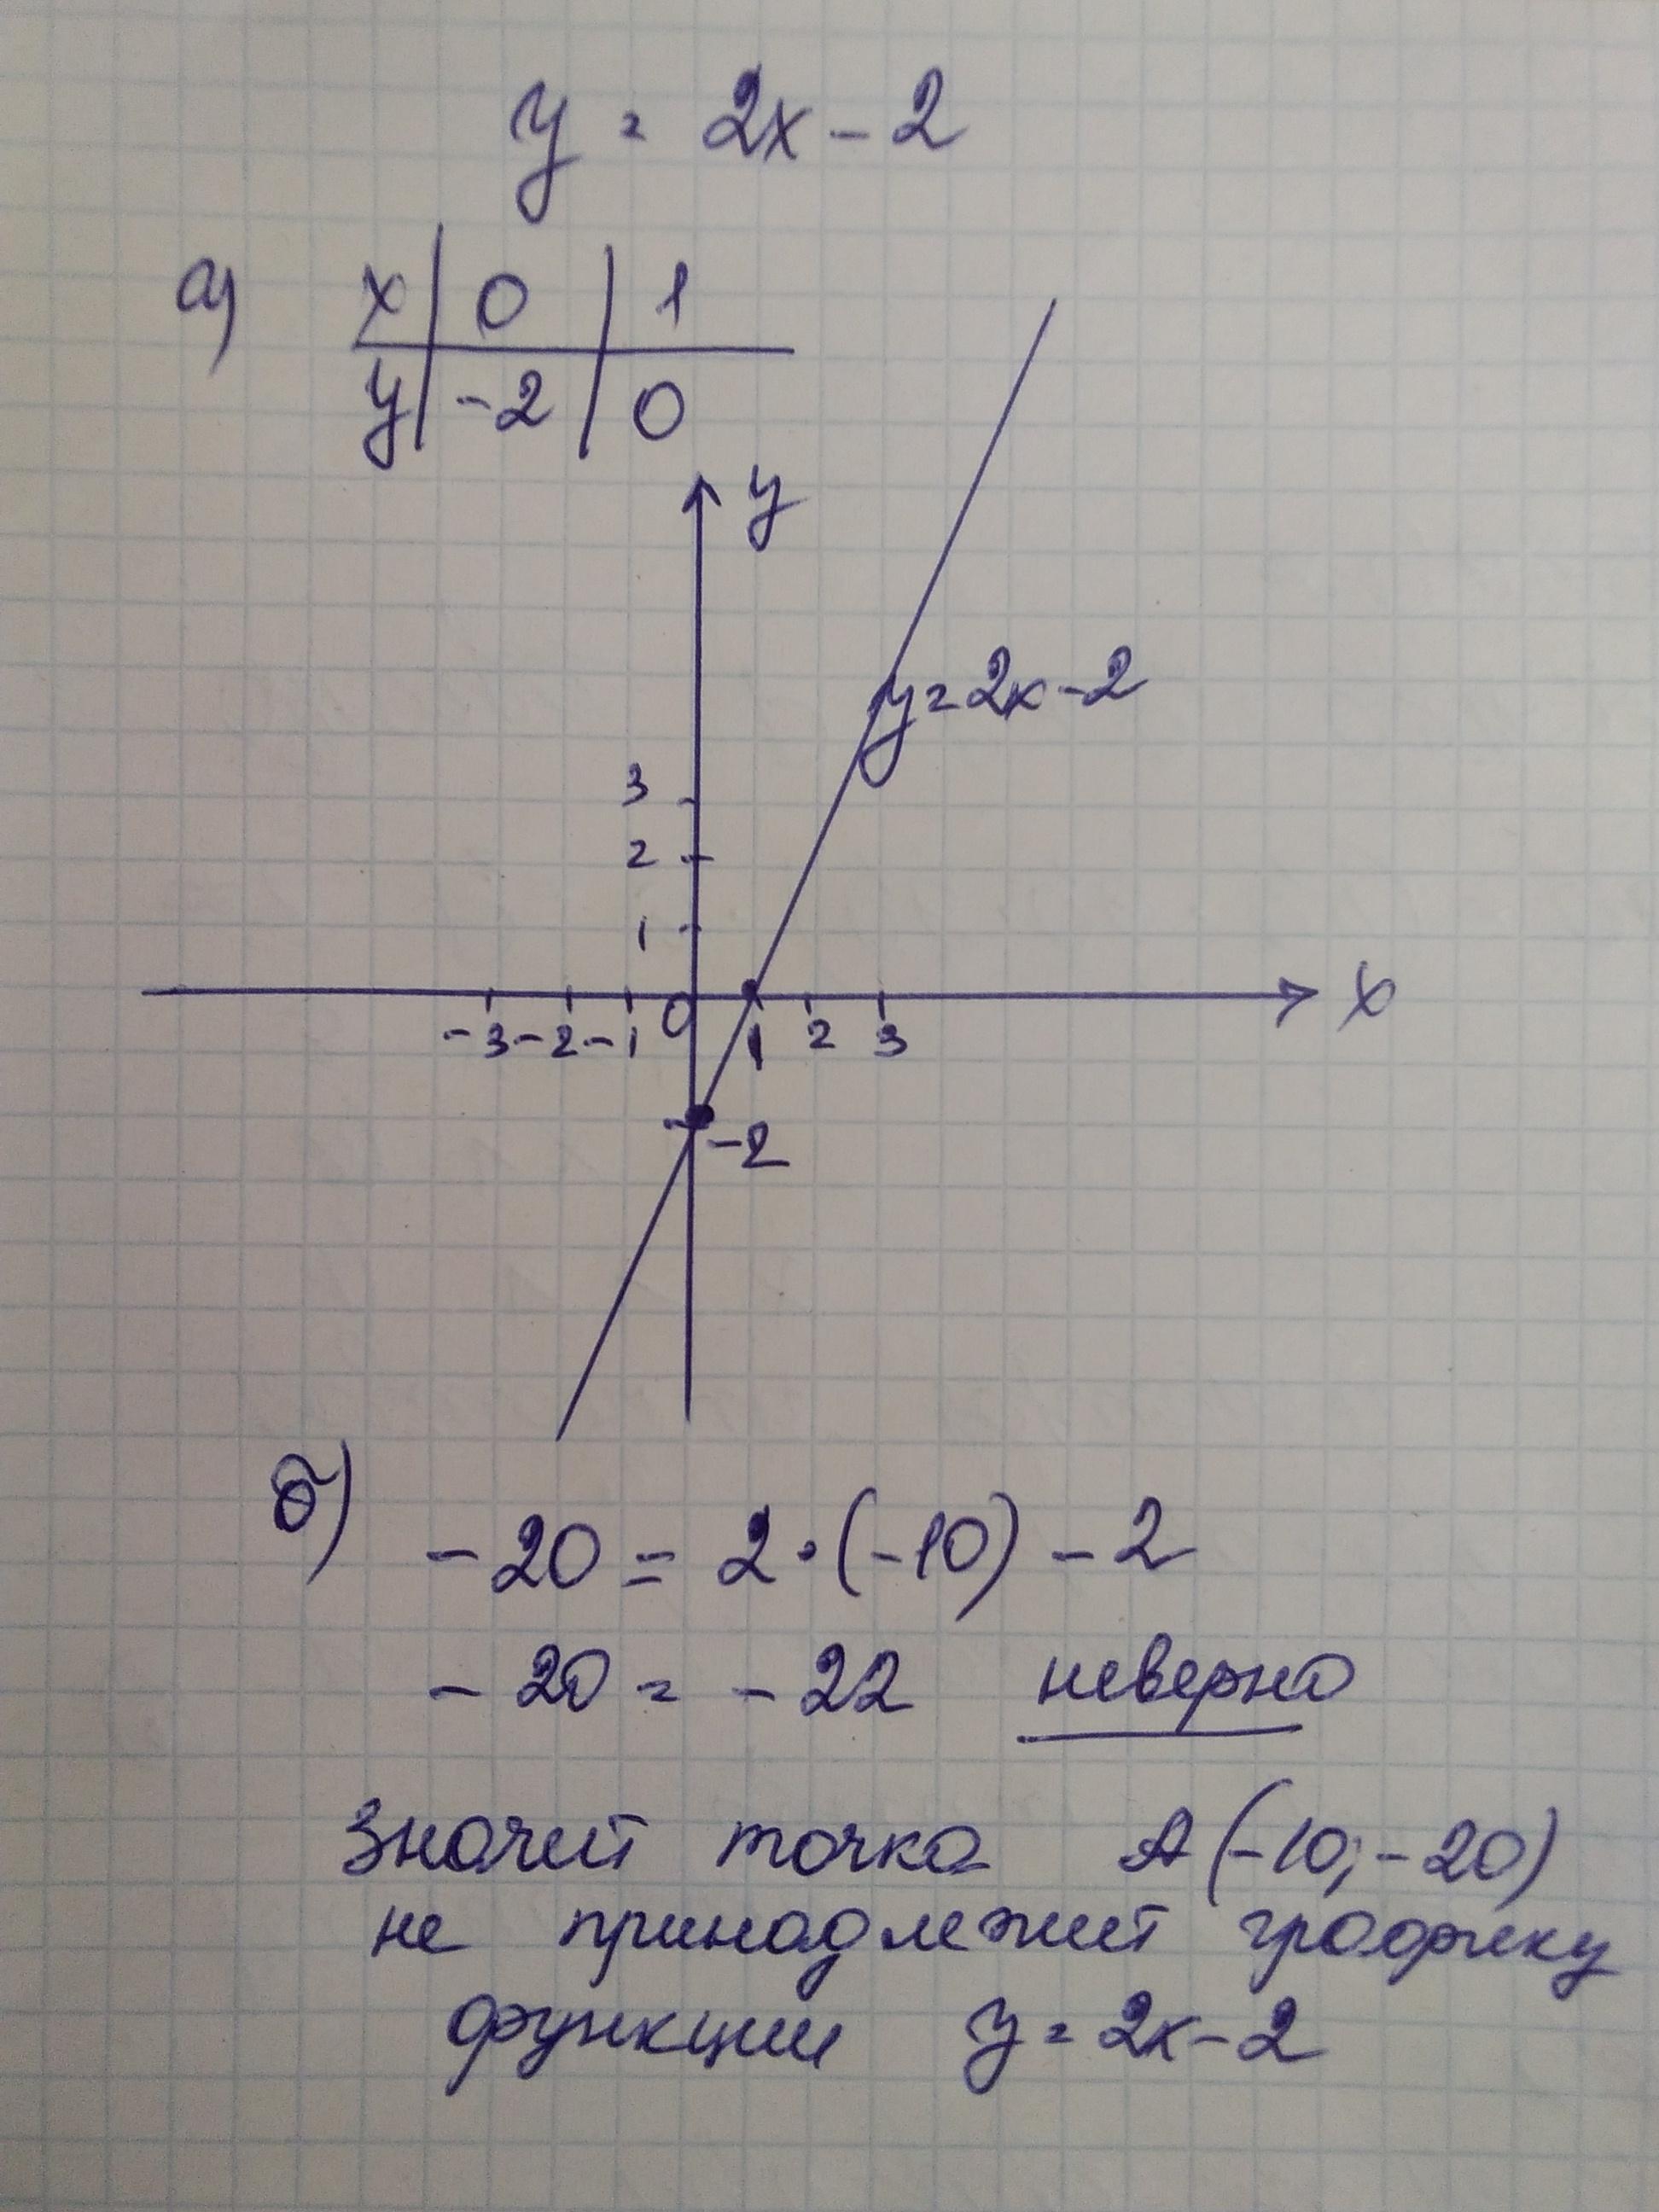 y = 2x - 2
а) x | 0 | 1
y | -2 | 0
y
y = 2x - 2
3
2
1
-3 -2 -1 0 1 2 3 x
-2
б) -20 = 2·(-10) - 2
-20 = -22 неверно
Значит точка A(-10; -20)
не принадлежит графику
функции y = 2x - 2